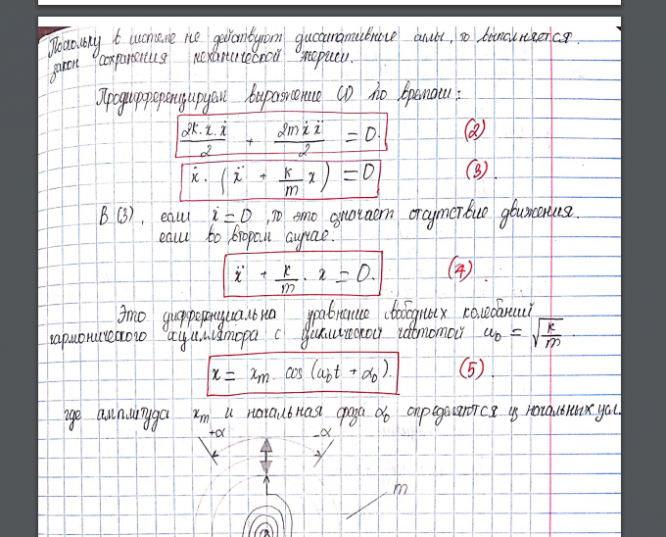 Поскольку в системе не действуют диссипативные силы, то выполняется
закон сохранения механической энергии.
Продифференцируем выражение (1) по времени:
2k·x·ẋ/2 + 2mẋẍ/2 = 0. (2)
ẋ·(ẍ + k/m x) = 0 (3).
В (3), если ẋ = 0, то это означает отсутствие движения.
если во втором случае.
ẍ + k/m · x = 0. (4).
Это дифференциально уравнение свободных колебаний
гармонического осциллятора с циклической частотой ω₀ = √k/m.
x = xm · cos (ω₀t + α₀). (5).
где амплитуда xm и начальная фаза α₀ определяются из начальных усл.
+α -α
m